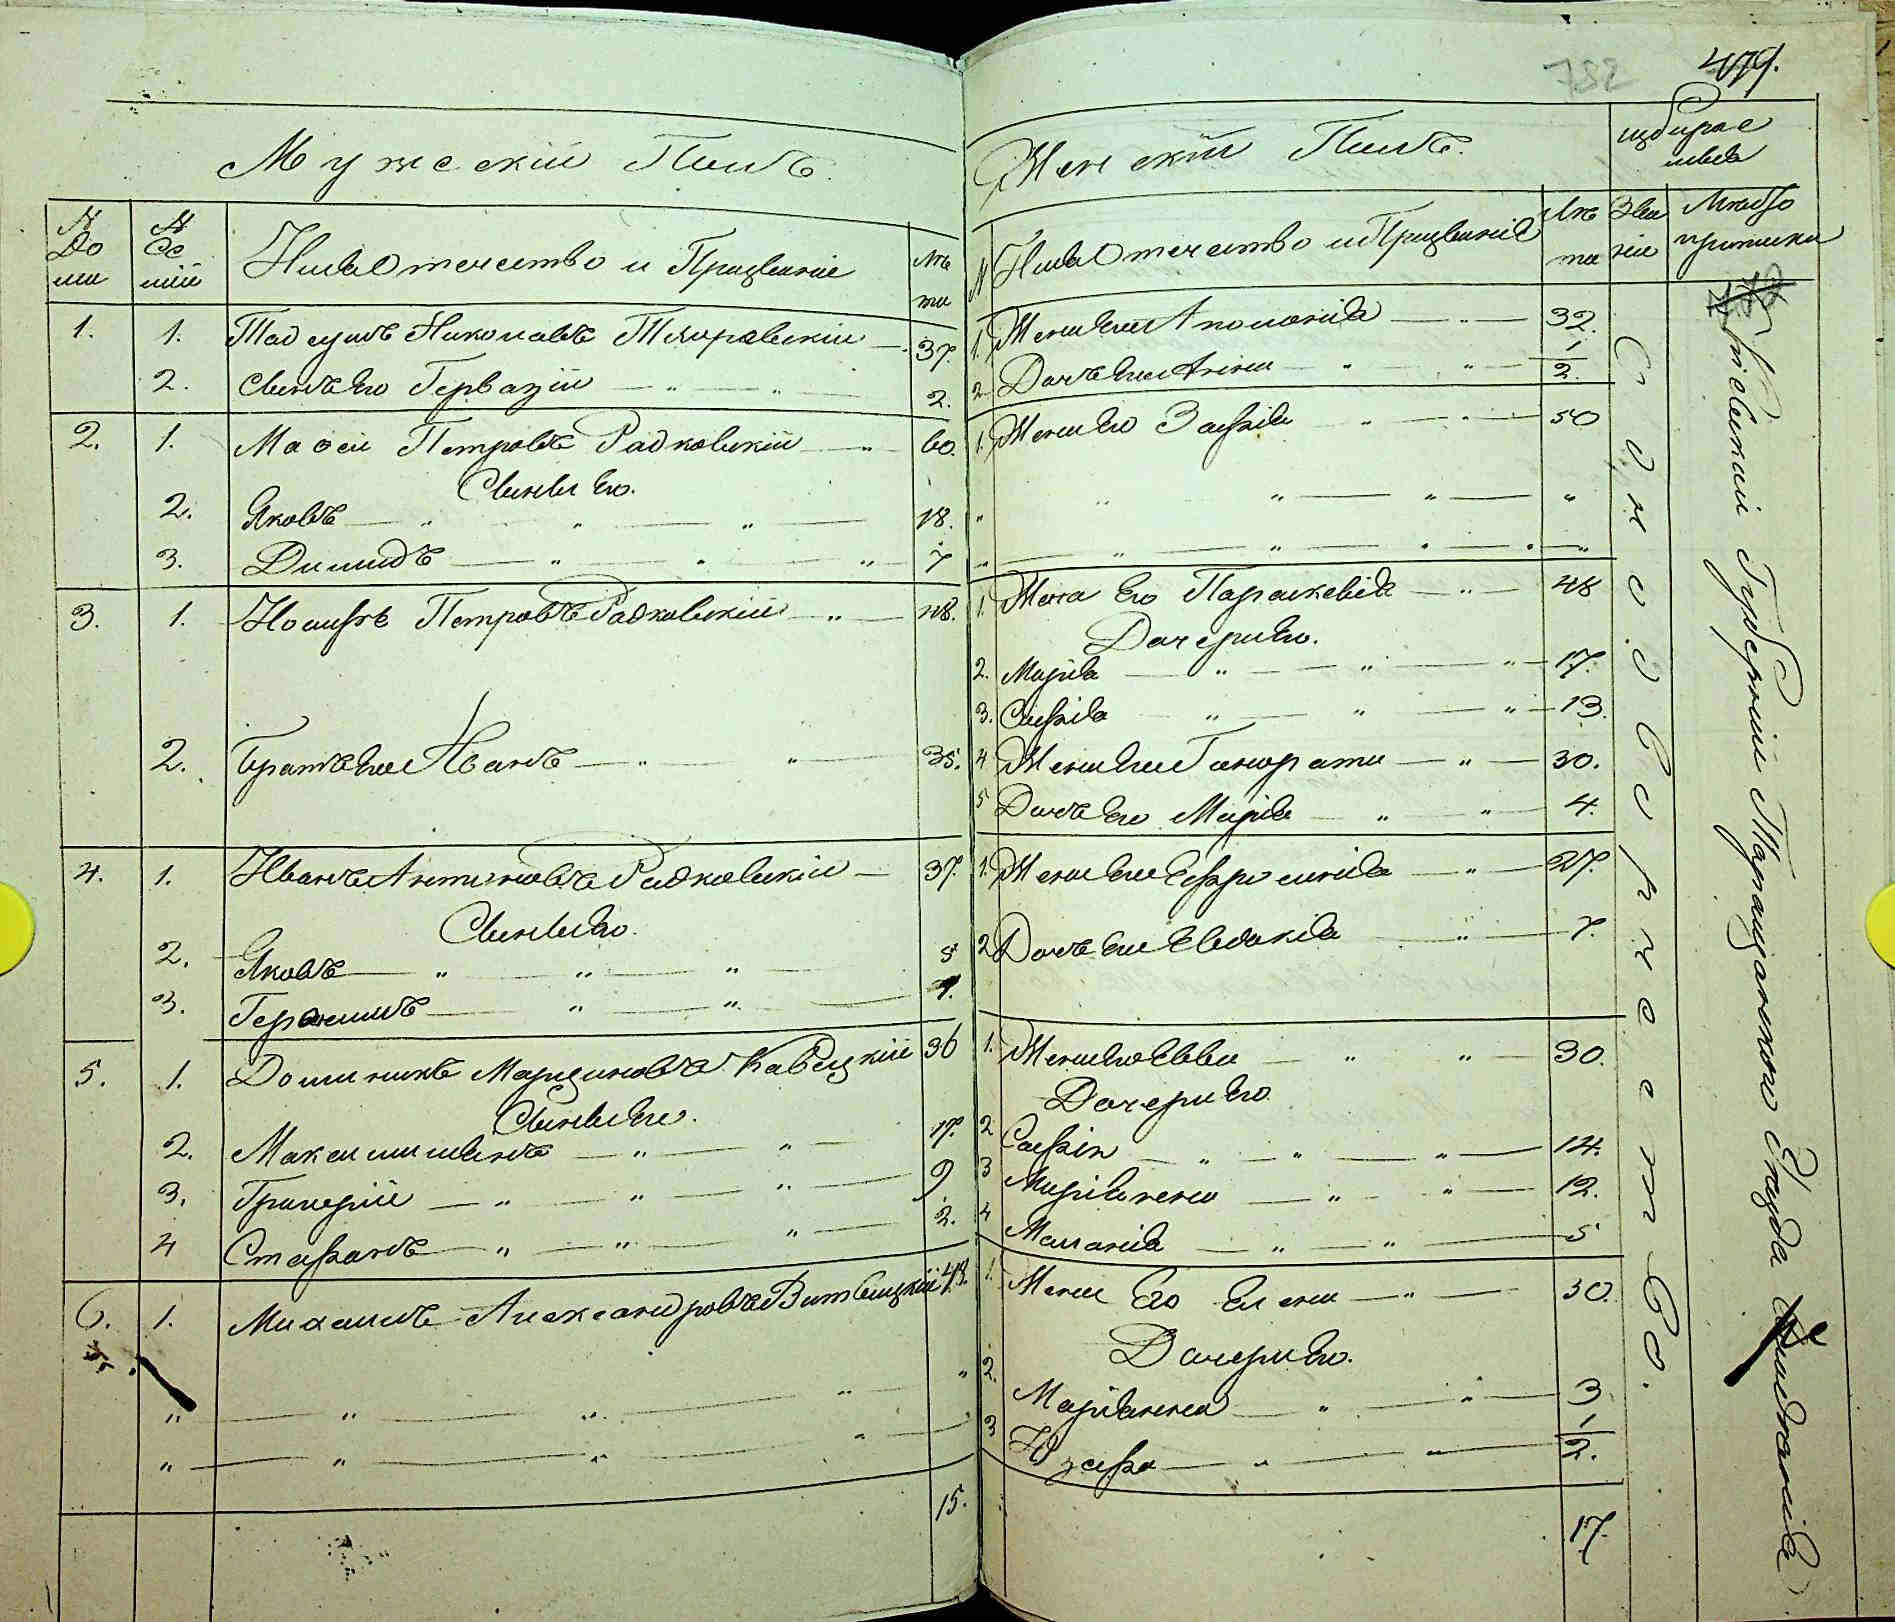 479.
Мужескій Полъ.
№ Домы
№ Семій
Имя Отчество и Прозваніе
Лѣта
1. 1. Тадеушъ Николаевъ 37.
2. Сынъ Его Гервазій 2.
2. 1. Мозей Петровъ Радковскій 60.
Сыны Его.
2. Яковъ 18.
3. Димидъ 7
3. 1. Иосифъ Петровъ Радковскій 48.
2. Братъ Его Иванъ 35.
4. 1. Иванъ Антоновъ Радковскій 37.
Сыны Его.
2. Яковъ
3. Герасимъ
5. 1. Доминикъ Марциновъ 36
Сыны Его.
2. Максимилианъ 17.
3. Григерій 9
4 Стафанъ 2.
6. 1. Михаилъ Александровъ Витвицкій 48.
15.
Женскій Полъ.
№ Имя Отчество и Прозваніе
Лѣта
Званіе
Мѣсто приписки
1. Жена Его Аполонія 32.
2 Дочь Его Анна 1/2.
1. Жена Его Зофія 50
1. Жена Его Параскевія 48
Дочери Его.
2. Марія 17.
3. Софія 13.
4 Жена Его Гонората 30.
5 Дочь Его Марія 4.
1. Жена Его Ефросинія 27.
2 Дочь Его Евдокія 7.
1. Жена Его Евва 30.
Дочери Его
2 Софія 14.
3 Маріанна 12.
4 Маланія 5
1. Жена Его Елена 30.
Дочери Его.
2. Маріанна 3
3 Юзефа 1/2.
17.
Однодворческаго
Кіевской Губерніи Таращанскаго Уѣзда